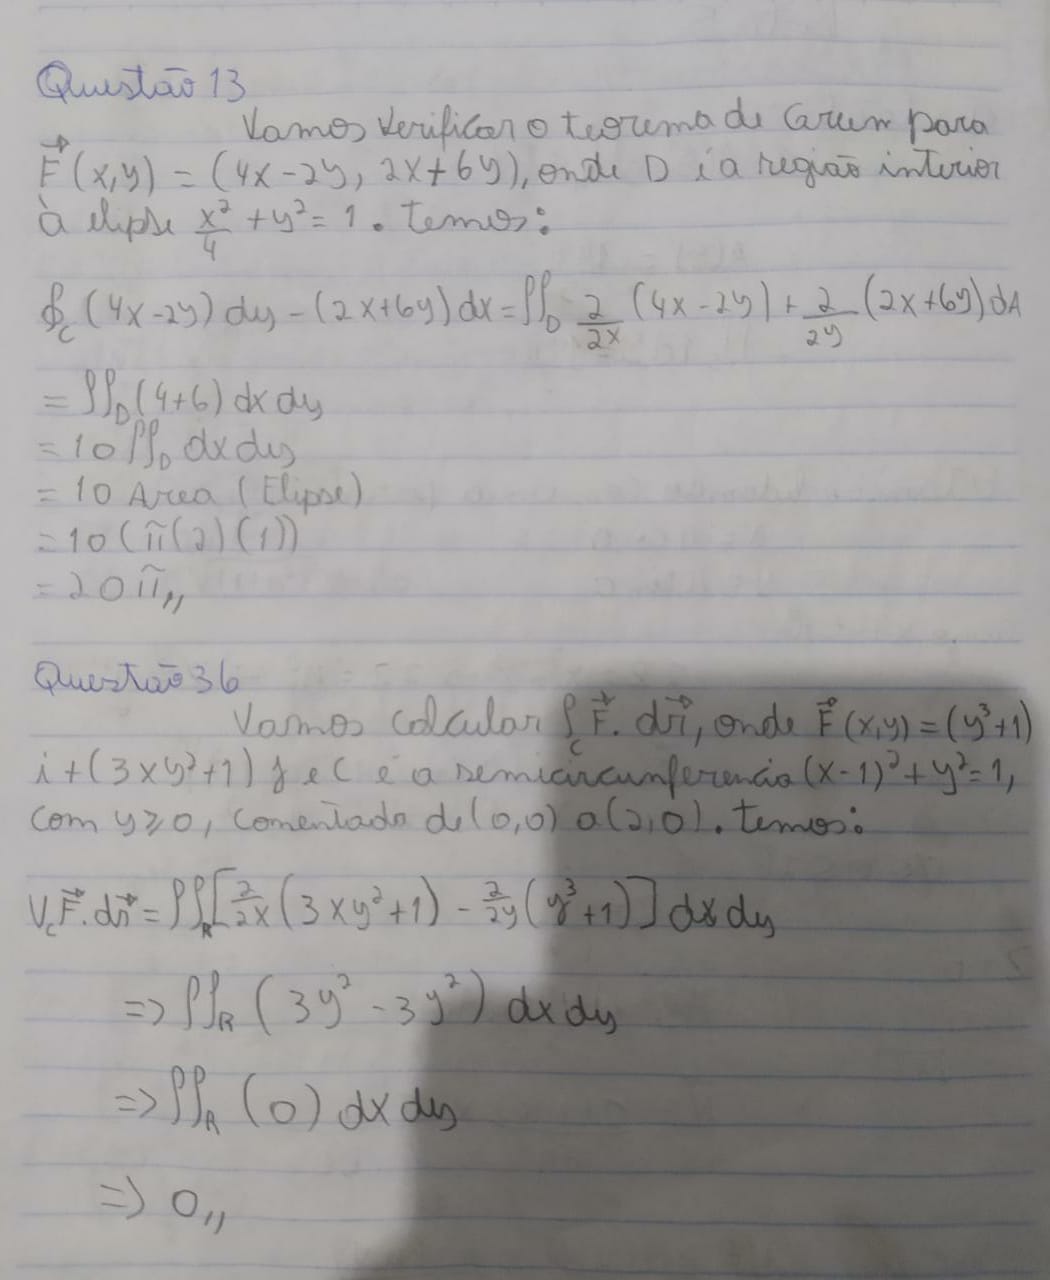 Questão 13
Vamos Verificar o teorema de Green para
F⃗(x,y) = (4x-2y, 2x+6y), onde D é a região interior
à elipse x²/4 + y² = 1. temos:
∮_C (4x-2y) dy - (2x+6y) dx = ∬_D ∂/∂x (4x-2y) + ∂/∂y (2x+6y) dA
= ∬_D (4+6) dx dy
= 10 ∬_D dx dy
= 10 Area (Elipse)
= 10 (π(2)(1))
= 20π,,
Questão 36
Vamos calcular ∫_C F⃗. dr⃗, onde F⃗(x,y) = (y³+1)
i + (3xy²+1) j e C é a semicircunferencia (x-1)² + y² = 1,
com y ≥ 0, comentado de (0,0) a (2,0). temos:
V_C F⃗. dr⃗ = ∬_R [∂/∂x (3xy²+1) - ∂/∂y (y³+1)] dx dy
=> ∬_R (3y² - 3y²) dx dy
=> ∬_R (0) dx dy
=> 0,,